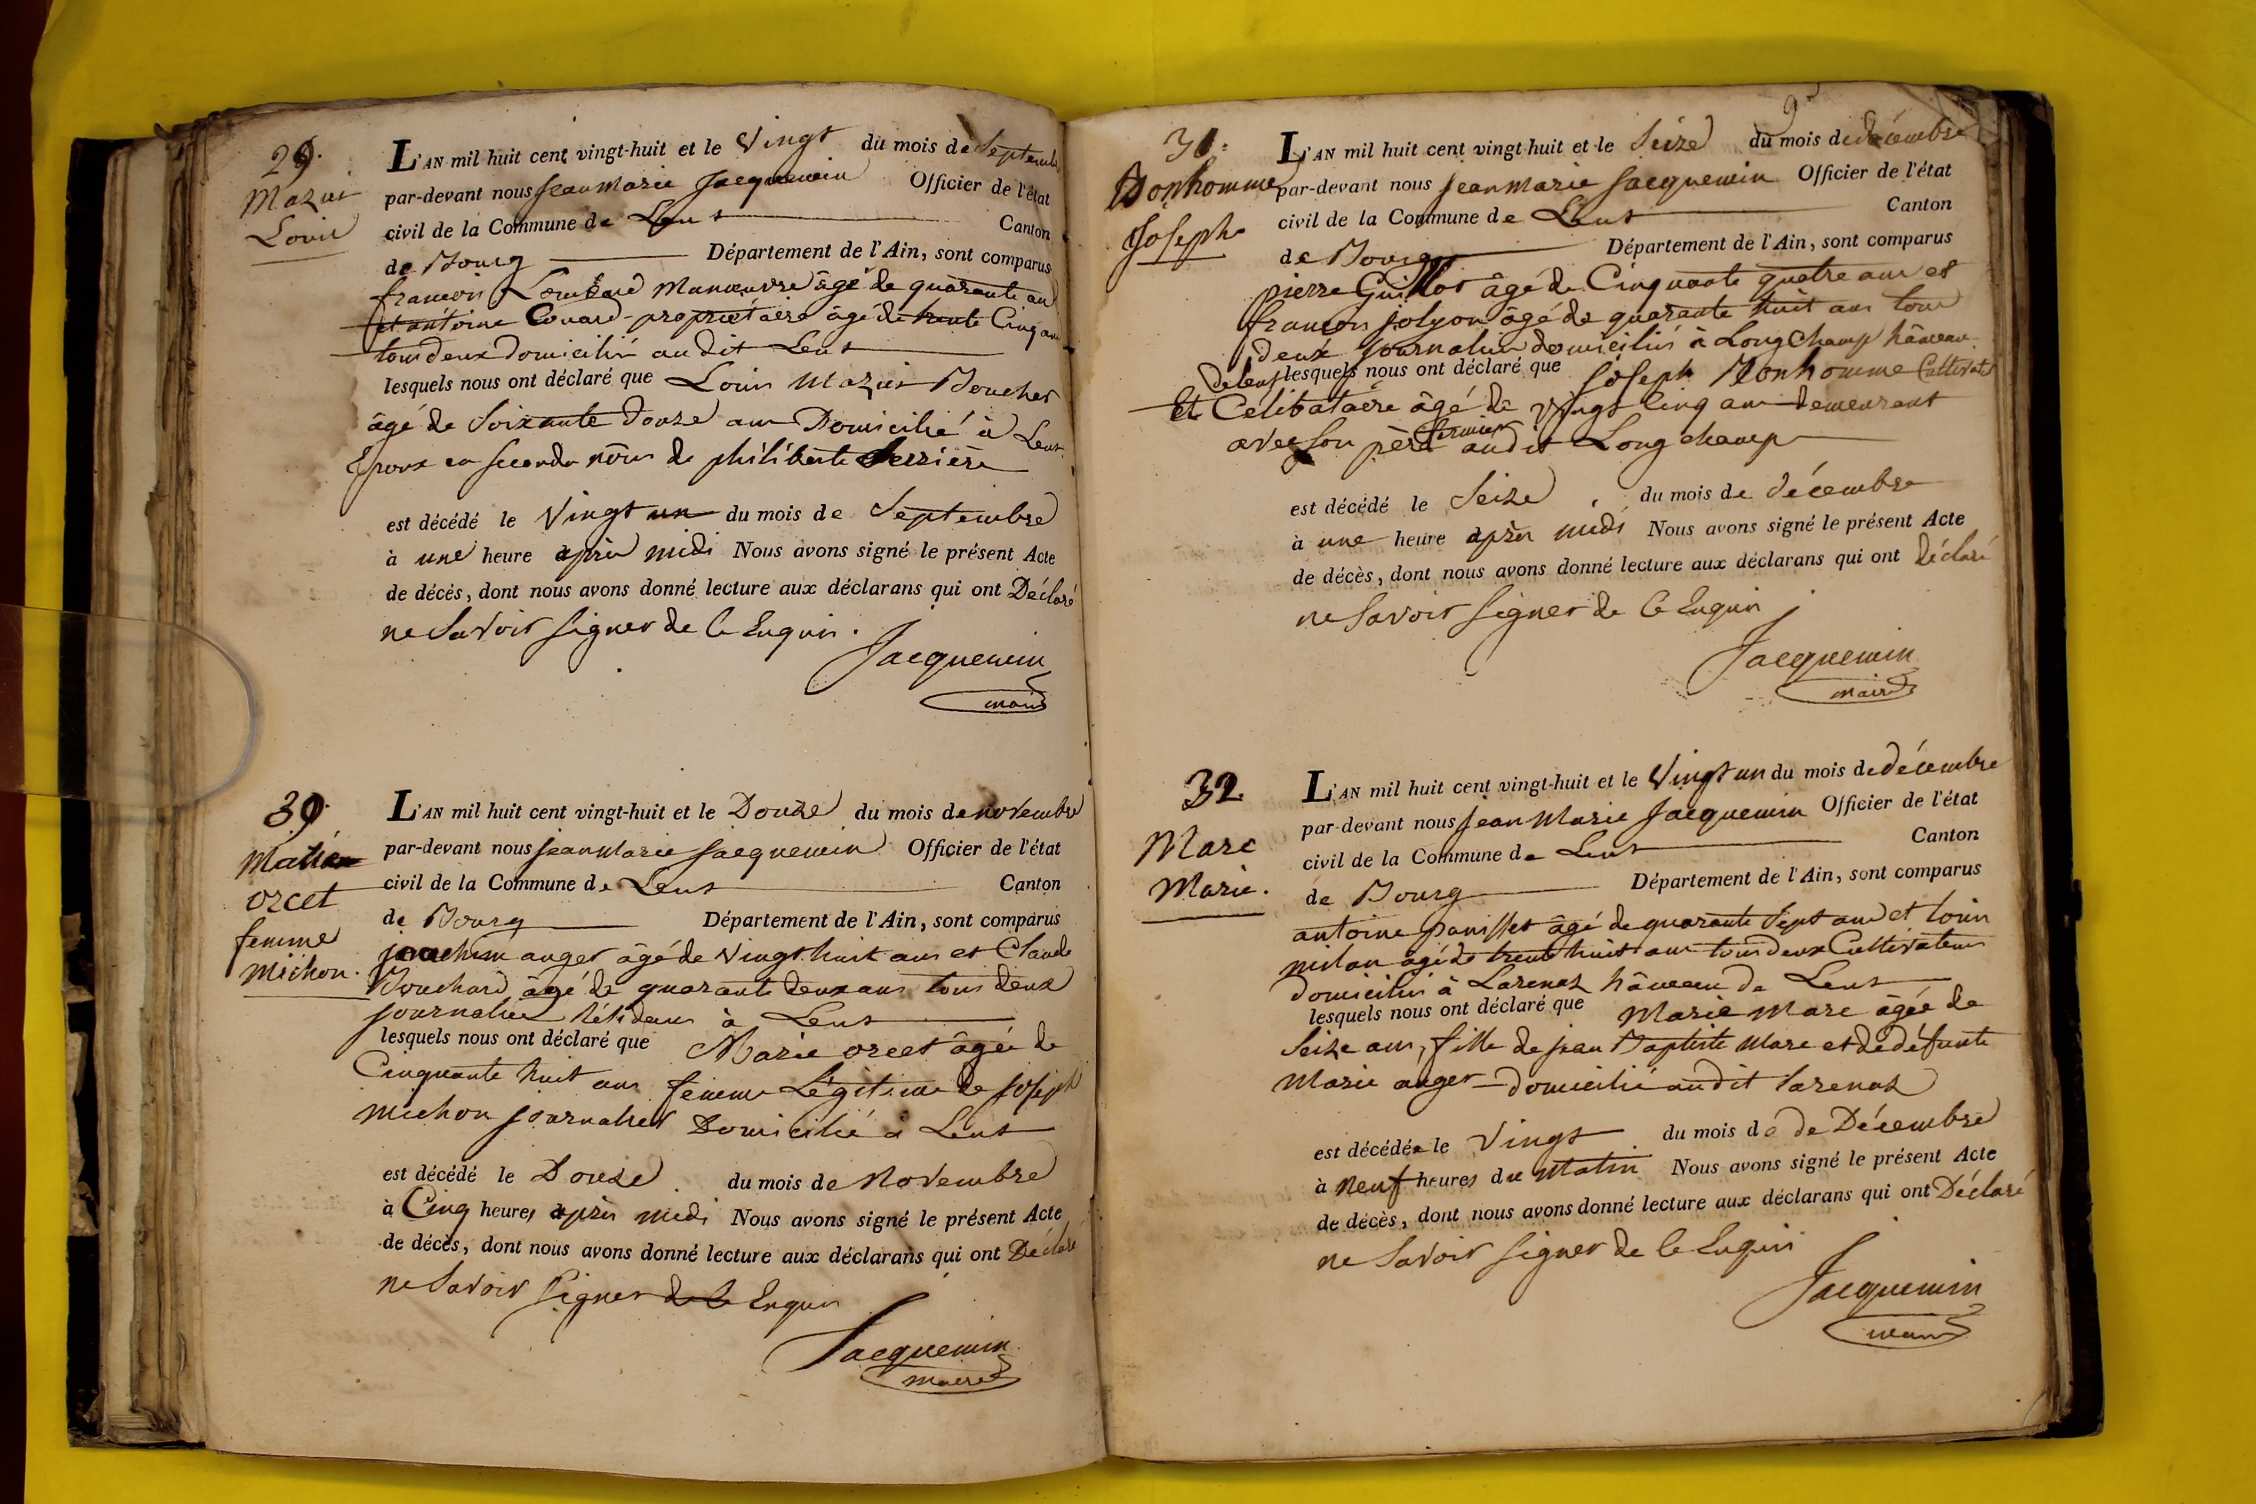 29.
Mazuir
Louis
L'AN mil huit cent vingt-huit et le Vingt du mois de Septembre
par-devant nous jean Marie Jacquemin Officier de l'état
civil de la Commune de Lent Canton
de Bourg Département de l'Ain, sont comparus
françois Lombard Manœuvre âgé de quarante ans
et antoine Couard propriétaire âgé de trente Cinq ans
tous deux Domicilié audit Lent
lesquels nous ont déclaré que Louis Mazuir Boucher
âgé de Soixante Douze ans Domicilié à Lent
Epoux en seconde nôces de philiberte Serrière
est décédé le Vingt un du mois de Septembre
à une heure après midi Nous avons signé le présent Acte
de décès, dont nous avons donné lecture aux déclarans qui ont Déclaré
ne Savoir Signer de Ce Enquis.
Jacquemin
maire
30.
Marie
orcet
femme
Michon.
L'AN mil huit cent vingt-huit et le Douze du mois de novembre
par-devant nous jean Marie Jacquemin Officier de l'état
civil de la Commune de Lent Canton
de Bourg Département de l'Ain, sont comparus
joachim anger âgé de Vingt huit ans et Claude
Bouchard âgé de quarante deux ans tous deux
journalier Résidans à Lent
lesquels nous ont déclaré que Marie orcet âgée de
Cinquante huit ans femme Légitime de joseph
Michon journalier Domicilié à Lent
est décédé le Douze du mois de Novembre
à Cinq heures après midi Nous avons signé le présent Acte
de décès, dont nous avons donné lecture aux déclarans qui ont Déclaré
ne Savoir Signer de Ce Enquis
Jacquemin
maire
9
31.
Bonhomme
Joseph
L'AN mil huit cent vingt-huit et le Seize du mois de décembre
par-devant nous jean Marie Jacquemin Officier de l'état
civil de la Commune de Lent Canton
de Bourg Département de l'Ain, sont comparus
pierre Guillot âgé de Cinquante quatre ans et
françois jolyon âgé de quarante huit ans tous
deux journalier domiciliés à Long Champ hâmeau
de Lent lesquels nous ont déclaré que joseph Bonhomme Cultivateur
Et Célibataire âgé de Vingt Cinq ans demeurant
avec son père fermier audit Long champ
est décédé le Seize du mois de décembre
à une heure après midi Nous avons signé le présent Acte
de décès, dont nous avons donné lecture aux déclarans qui ont Déclaré
ne Savoir Signer de Ce Enquis
Jacquemin
maire
32
Marc
Marie.
L'AN mil huit cent vingt-huit et le Vingt un du mois de décembre
par-devant nous jean Marie Jacquemin Officier de l'état
civil de la Commune de Lent Canton
de Bourg Département de l'Ain, sont comparus
antoine panisset âgé de quarante Sept ans et louis
milan âgé de trente huit ans tous deux Cultivateurs
domiciliés à Larenas hâmeau de Lent
lesquels nous ont déclaré que Marie Marc âgée de
Seize ans, fille de jean Baptiste Marc et de défunte
Marie anger domicilié audit Larenas
est décédée le Vingt du mois de de Décembre
à neuf heures du Matin Nous avons signé le présent Acte
de décès, dont nous avons donné lecture aux déclarans qui ont Déclaré
ne Savoir Signer de Ce Enquis
Jacquemin
maire